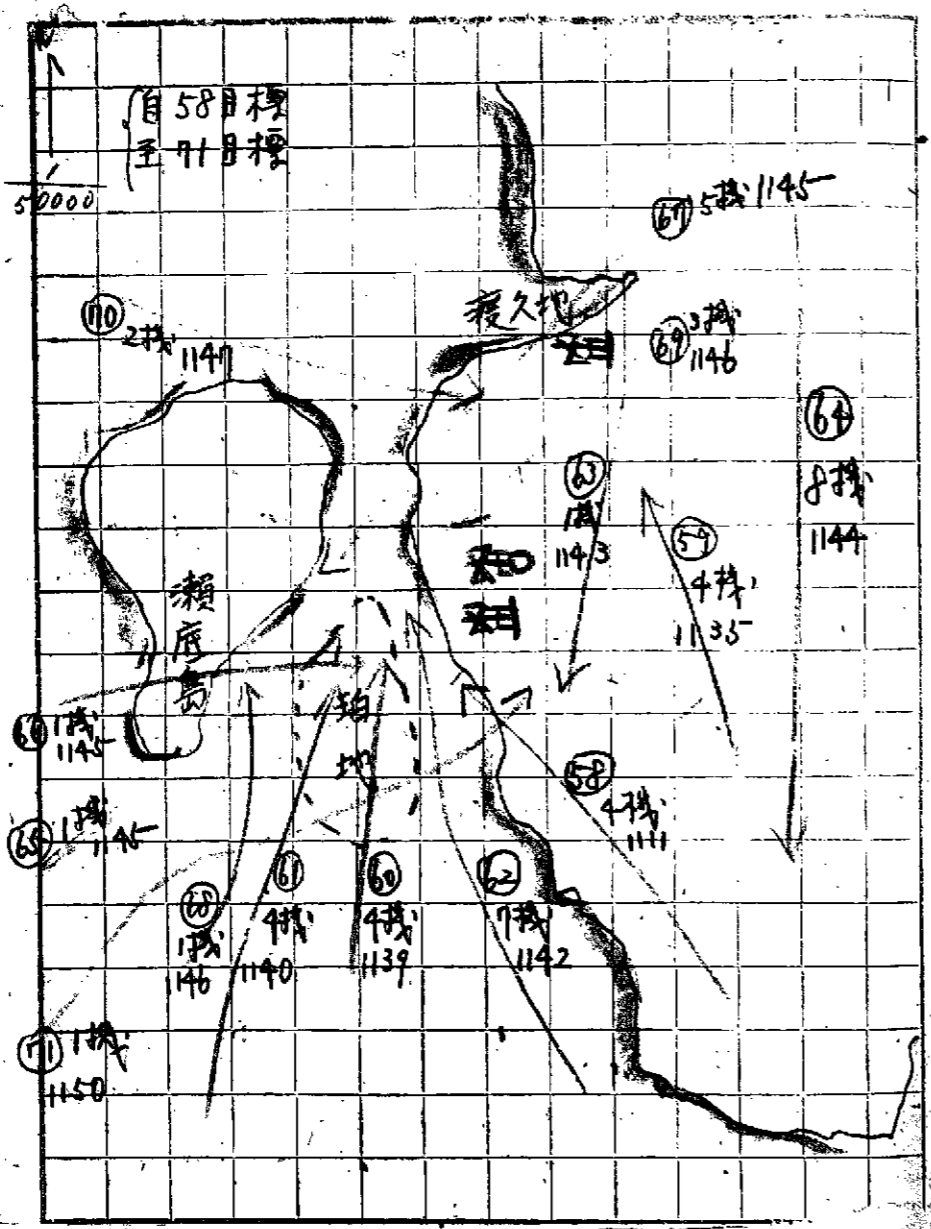 N
自58目標
至71目標
50000
67 5機 1145
渡久地
70
2機
1147
69 3機
1146
64
8機
1144
63
1機
1143
59
4機
1135
瀬底島
66 1機
1145
泊地
58
4機
1111
65 1機
1145
61
4機
1140
60
4機
1139
62
7機
1142
68
1機
1146
71 1機
1150